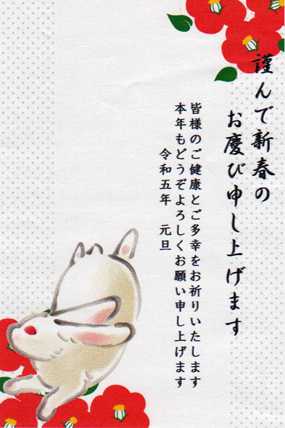 謹んで新春の
お慶び申し上げます
皆様のご健康とご多幸をお祈りいたします
本年もどうぞよろしくお願い申し上げます
令和五年 元旦